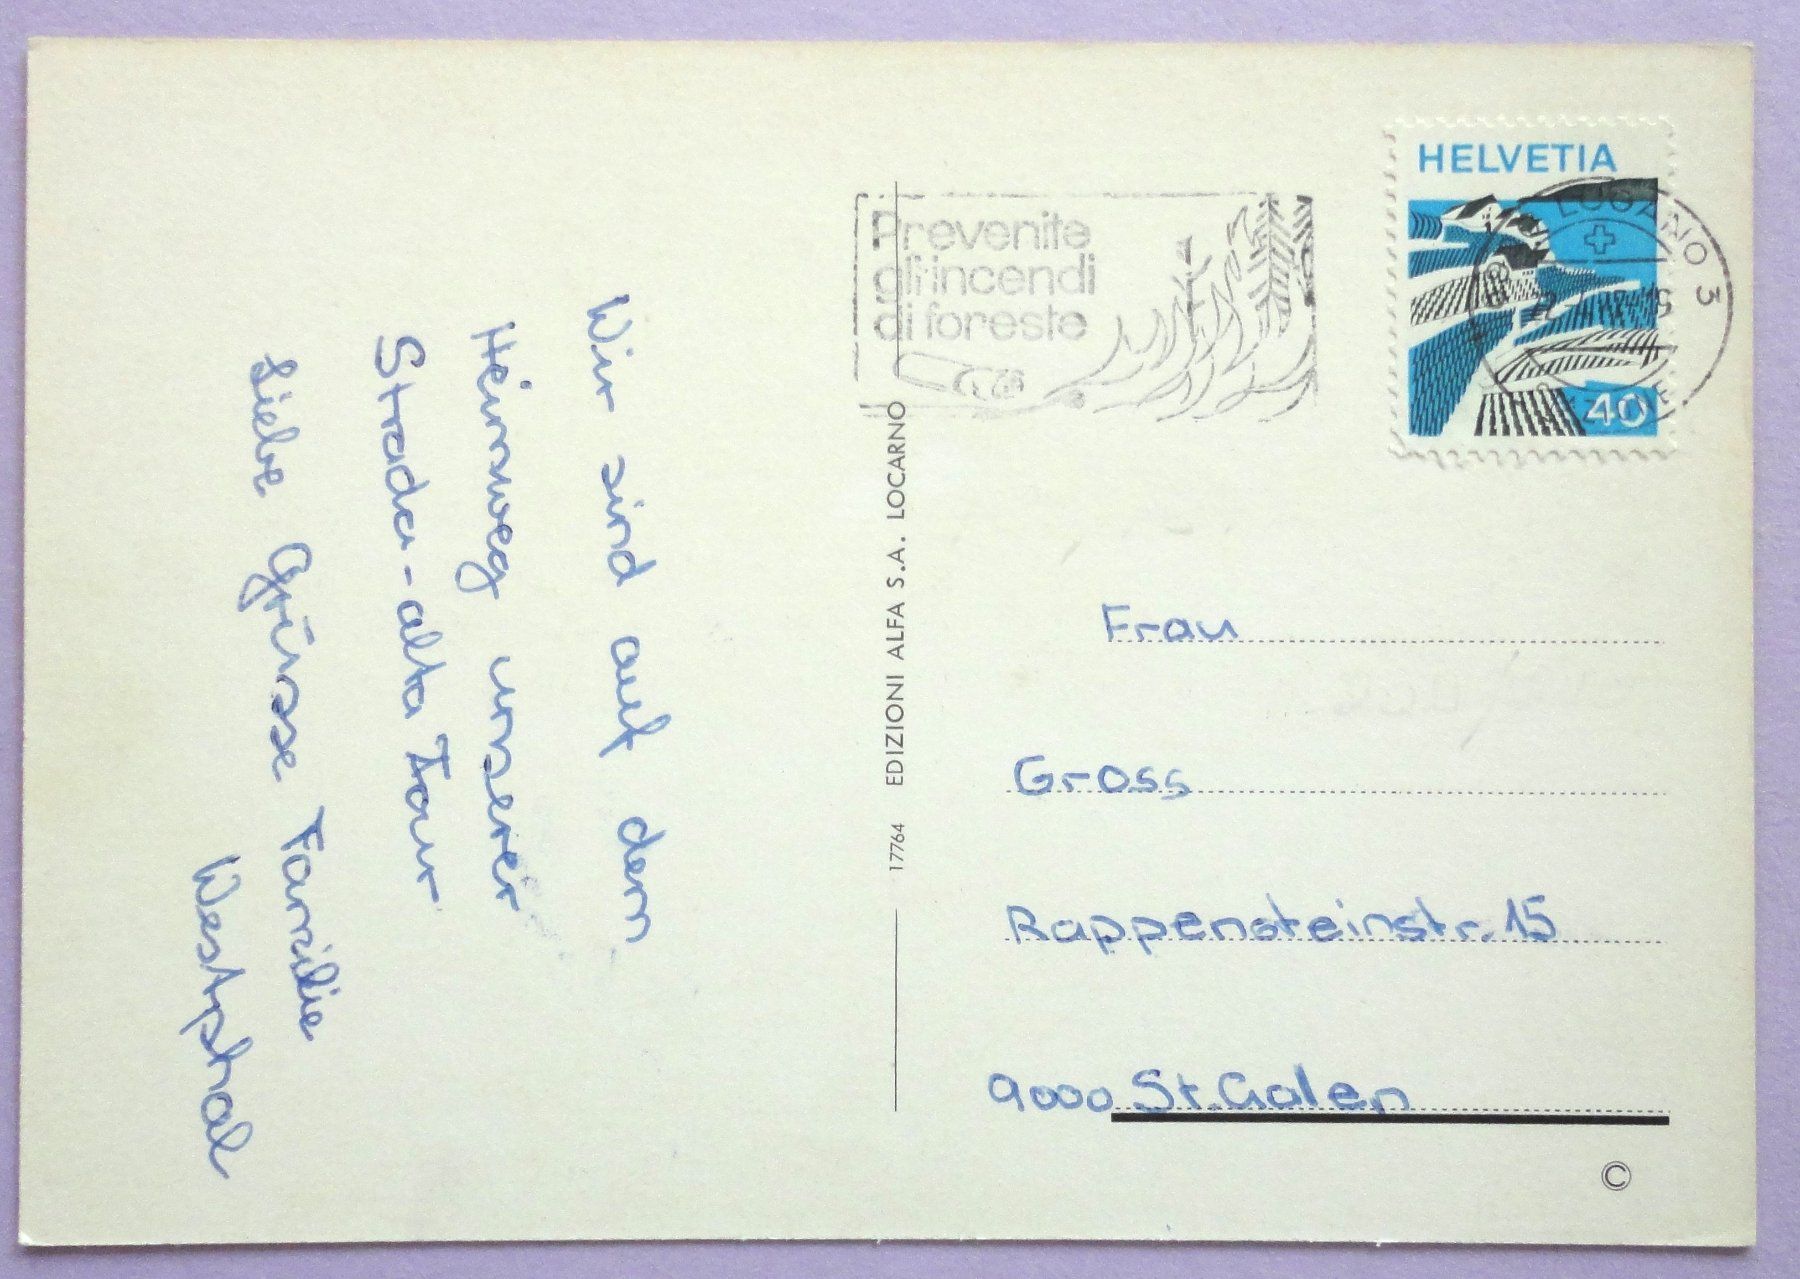 Wir sind auf dem
Heimweg unserer
Strada-alta Tour
Liebe Grüsse Familie
Westphal
Prevenite
gli incendi
di foreste
HELVETIA
40
LUGANO 3
17764 EDIZIONI ALFA S.A. LOCARNO
Frau
Gross
Rappensteinstr. 15
9000 St. Galen
©